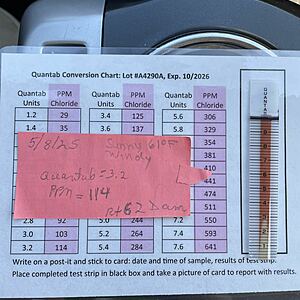 Quantab Conversion Chart: Lot #A4290A, Exp. 10/2026
Quantab Units PPM Chloride Quantab Units PPM Chloride Quantab Units PPM Chloride
1.2 29 3.4 125 5.6 306
1.4 35 3.6 137 5.8 329
354
381
410
441
474
511
2.8 92 5.0 244 7.2 550
3.0 103 5.2 264 7.4 593
3.2 114 5.4 284 7.6 641
5/8/25 Sunny 61°F
Windy
Quantab = 3.2
PPM = 114
Rt 62 Dam
Write on a post-it and stick to card: date and time of sample, results of test strip.
Place completed test strip in black box and take a picture of card to report with results.
QUANTAB